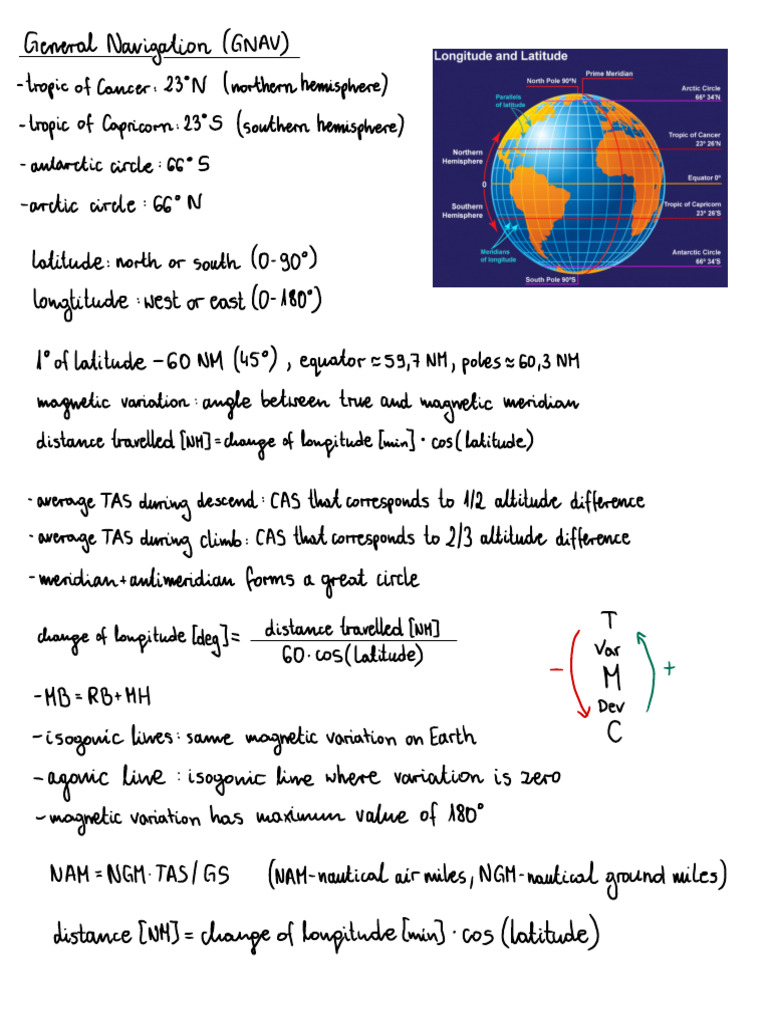 General Navigation (GNAV)
-tropic of Cancer: 23°N (northern hemisphere)
-tropic of Capricorn: 23°S (southern hemisphere)
-antarctic circle: 66°S
-arctic circle: 66°N
Longitude and Latitude
Prime Meridian
North Pole 90ºN
Arctic Circle
66º 34'N
Parallels
of latitude
Tropic of Cancer
23º 26'N
Northern
Hemisphere
Equator 0º
0
Southern
Hemisphere
Tropic of Capricorn
23º 26'S
Meridians
of longitude
Antarctic Circle
66º 34'S
South Pole 90ºS
latitude: north or south (0-90°)
longtitude: west or east (0-180°)
1° of latitude - 60 NM (45°), equator ≈ 59,7 NM, poles ≈ 60,3 NM
magnetic variation: angle between true and magnetic meridian
distance travelled [NM] = change of longitude [min] · cos(latitude)
-average TAS during descend: CAS that corresponds to 1/2 altitude difference
-average TAS during climb: CAS that corresponds to 2/3 altitude difference
-meridian+antimeridian forms a great circle
change of longitude [deg] = distance travelled [NM]
60·cos(latitude)
T
Var
- M +
Dev
C
-MB = RB+MH
-isogonic lines: same magnetic variation on Earth
-agonic line: isogonic line where variation is zero
-magnetic variation has maximum value of 180°
NAM = NGM·TAS/GS (NAM-nautical air miles, NGM-nautical ground miles)
distance [NM] = change of longitude [min] · cos (latitude)